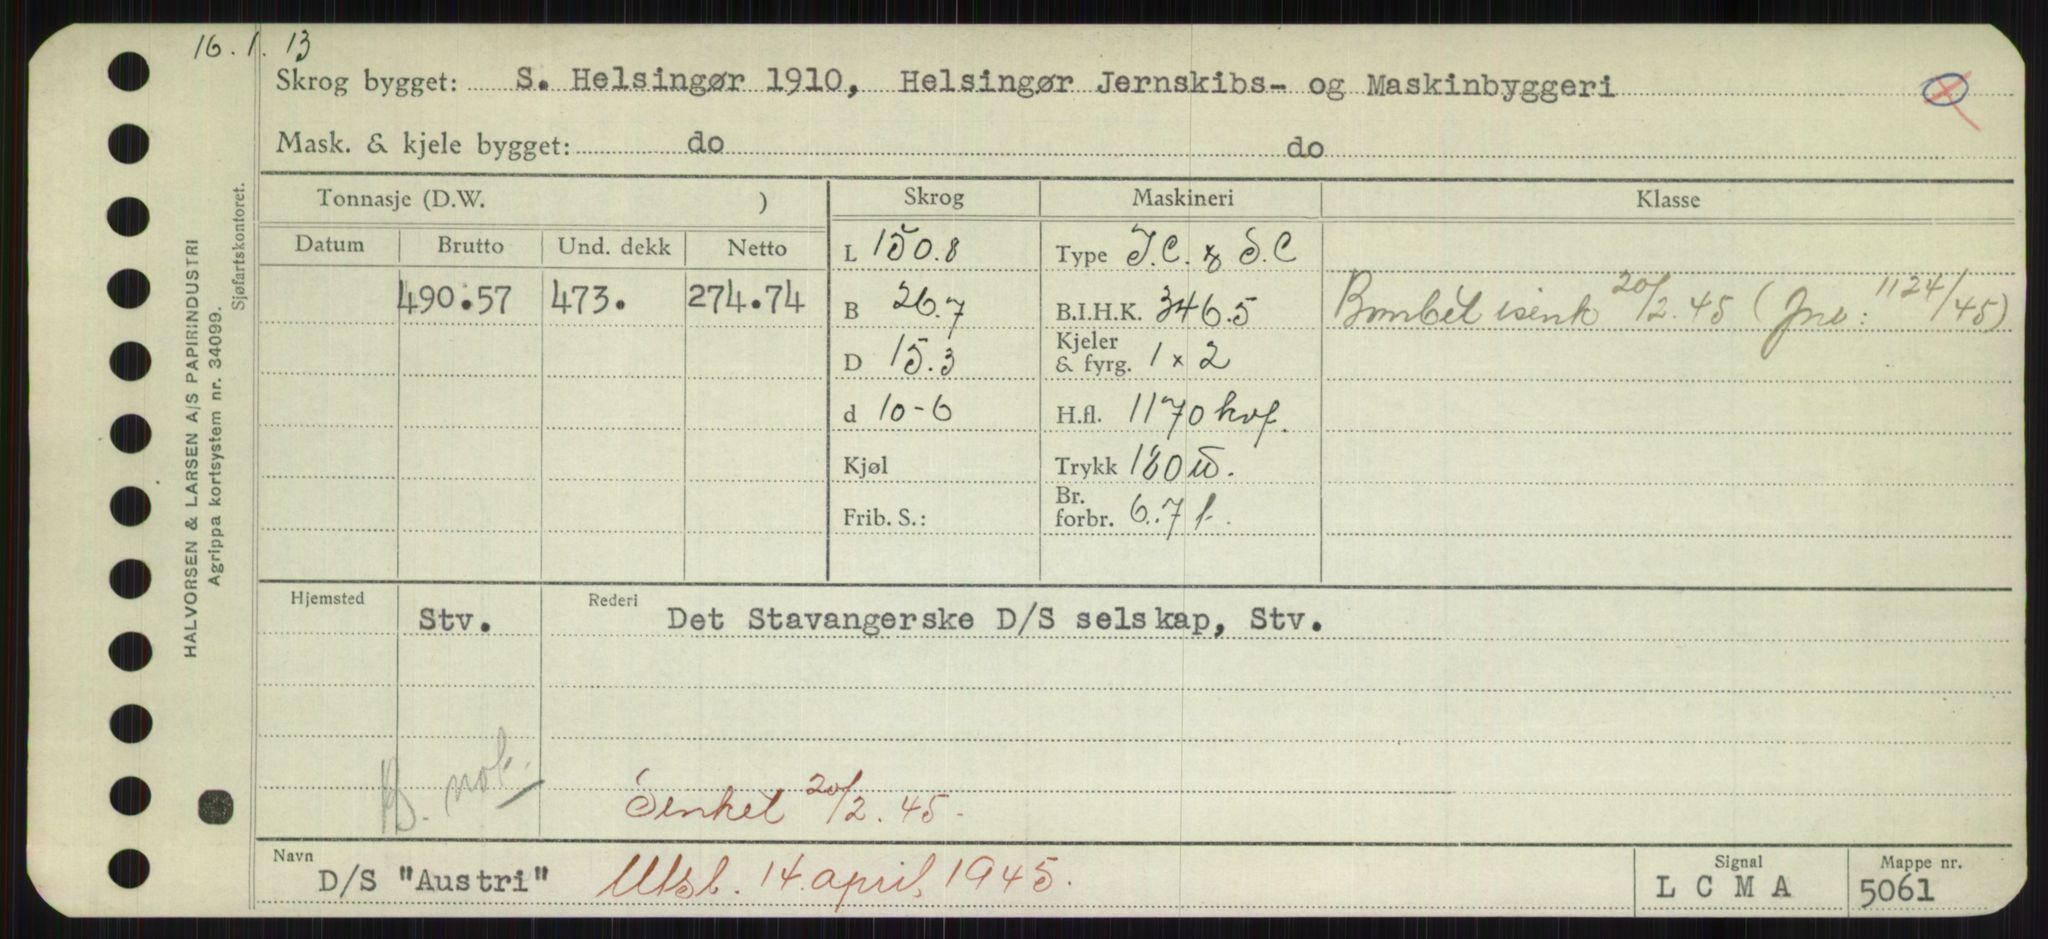 16.1.13
Skrog bygget: S. Helsingør 1910, Helsingør Jernskibs- og Maskinbyggeri
Mask. & kjele bygget: do do
Tonnasje (D.W. ) Skrog Maskineri Klasse
Datum Brutto Und. dekk Netto L 150.8 Type T.C. & S.C
490.57 473. 274.74 B 26.7 B.I.H.K. 346.5 Bombet i senk 20/2.45 (Jnr: 1124/45)
D 15.3 Kjeler & fyrg. 1 x 2
d 10-6 H.fl. 1170 kvf.
Kjøl Trykk 180
Frib. S.: Br. forbr. 6.7 t.
Hjemsted Stv. Rederi Det Stavangerske D/S selskap, Stv.
not.
Senket 20/2.45.
Navn D/S "Austri" Utsl. 14. april 1945. Signal L C M A Mappe nr. 5061
HALVORSEN & LARSEN A/S PAPIRINDUSTRI
Agrippa kortsystem nr. 34099.
Sjøfartskontoret.